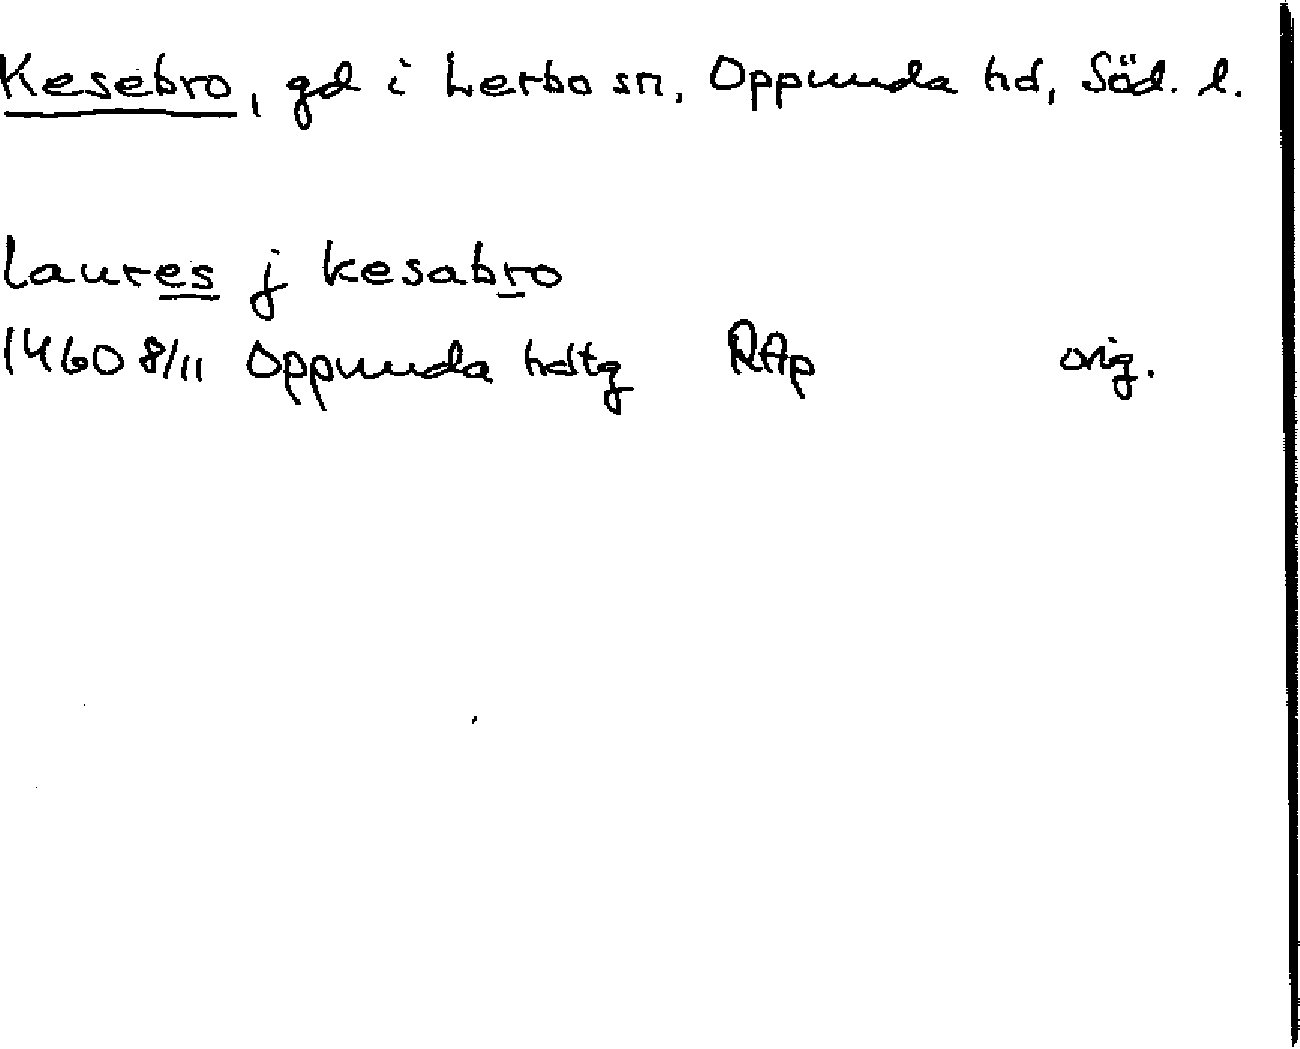 Kesebro, gd i Lerbo sn, Oppunda hd, Söd. l.
laures j kesabro
1460 8/11 Oppunda hdtg RAp orig.